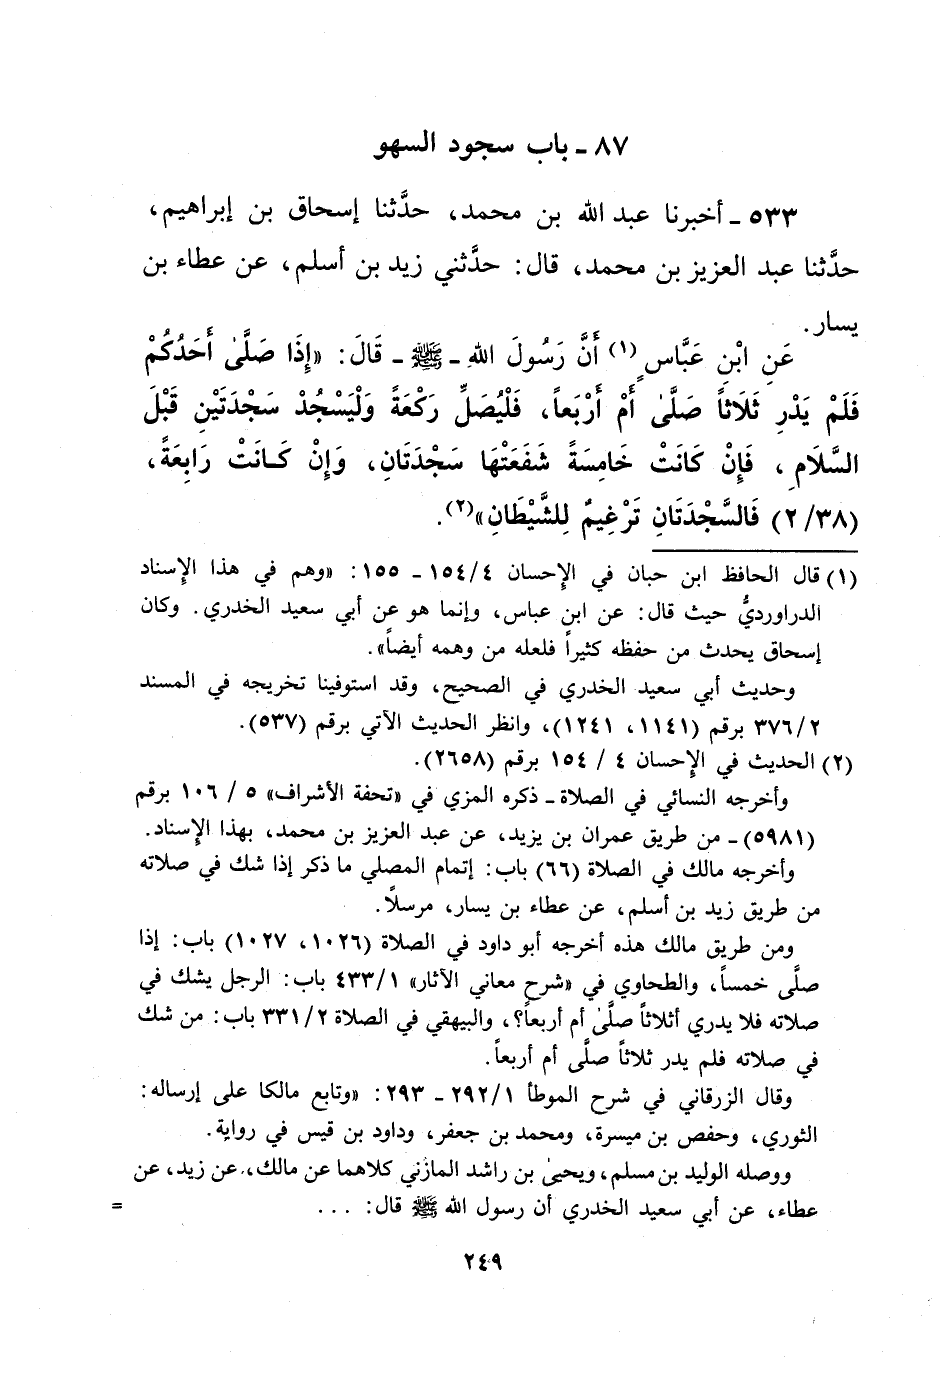 ٨٧ ـ باب سجود السهو
٥٣٣ ـ أخبرنا عبد الله بن محمد، حدَّثنا إسحاق بن إبراهيم،
حدَّثنا عبد العزيز بن محمد، قال: حدَّثني زيد بن أسلم، عن عطاء بن
يسار.
عَنِ ابْنِ عَبَّاسٍ (١) أَنَّ رَسُولَ اللهِ ـ ﷺ ـ قَالَ: «إِذَا صَلَّىٰ أَحَدُكُمْ
فَلَمْ يَدْرِ ثَلَاثاً صَلَّىٰ أَمْ أَرْبَعاً، فَلْيُصَلِّ رَكْعَةً وَلْيَسْجُدْ سَجْدَتَيْنِ قَبْلَ
السَّلَامِ، فَإِنْ كَانَتْ خَامِسَةً شَفَعَتْهَا سَجْدَتَانِ، وَإِنْ كَانَتْ رَابِعَةً،
(٢/٣٨) فَالسَّجْدَتَانِ تَرْغِيمٌ لِلشَّيْطَانِ»(٢).
(١) قال الحافظ ابن حبان في الإحسان ١٥٤/٤ ـ ١٥٥: «وهم في هذا الإسناد
الدراورديُّ حيث قال: عن ابن عباس، وإنما هو عن أبي سعيد الخدري. وكان
إسحاق يحدث من حفظه كثيراً فلعله من وهمه أيضاً».
وحديث أبي سعيد الخدري في الصحيح، وقد استوفينا تخريجه في المسند
٣٧٦/٢ برقم (١١٤١، ١٢٤١)، وانظر الحديث الآتي برقم (٥٣٧).
(٢) الحديث في الإحسان ٤ / ١٥٤ برقم (٢٦٥٨).
وأخرجه النسائي في الصلاة ـ ذكره المزي في «تحفة الأشراف» ٥ / ١٠٦ برقم
(٥٩٨١) ـ من طريق عمران بن يزيد، عن عبد العزيز بن محمد، بهذا الإسناد.
وأخرجه مالك في الصلاة (٦٦) باب: إتمام المصلي ما ذكر إذا شك في صلاته
من طريق زيد بن أسلم، عن عطاء بن يسار، مرسلاً.
ومن طريق مالك هذه أخرجه أبو داود في الصلاة (١٠٢٦، ١٠٢٧) باب: إذا
صلَّى خمساً، والطحاوي في «شرح معاني الآثار» ٤٣٣/١ باب: الرجل يشك في
صلاته فلا يدري أثلاثاً صلَّىٰ أم أربعاً؟، والبيهقي في الصلاة ٣٣١/٢ باب: من شك
في صلاته فلم يدر ثلاثاً صلَّى أم أربعاً.
وقال الزرقاني في شرح الموطأ ٢٩٢/١ ـ ٢٩٣: «وتابع مالكا على إرساله:
الثوري، وحفص بن ميسرة، ومحمد بن جعفر، وداود بن قيس في رواية.
ووصله الوليد بن مسلم، ويحيىٰ بن راشد المازني كلاهما عن مالك، عن زيد، عن
عطاء، عن أبي سعيد الخدري أن رسول الله ﷺ قال: ... =
٢٤٩